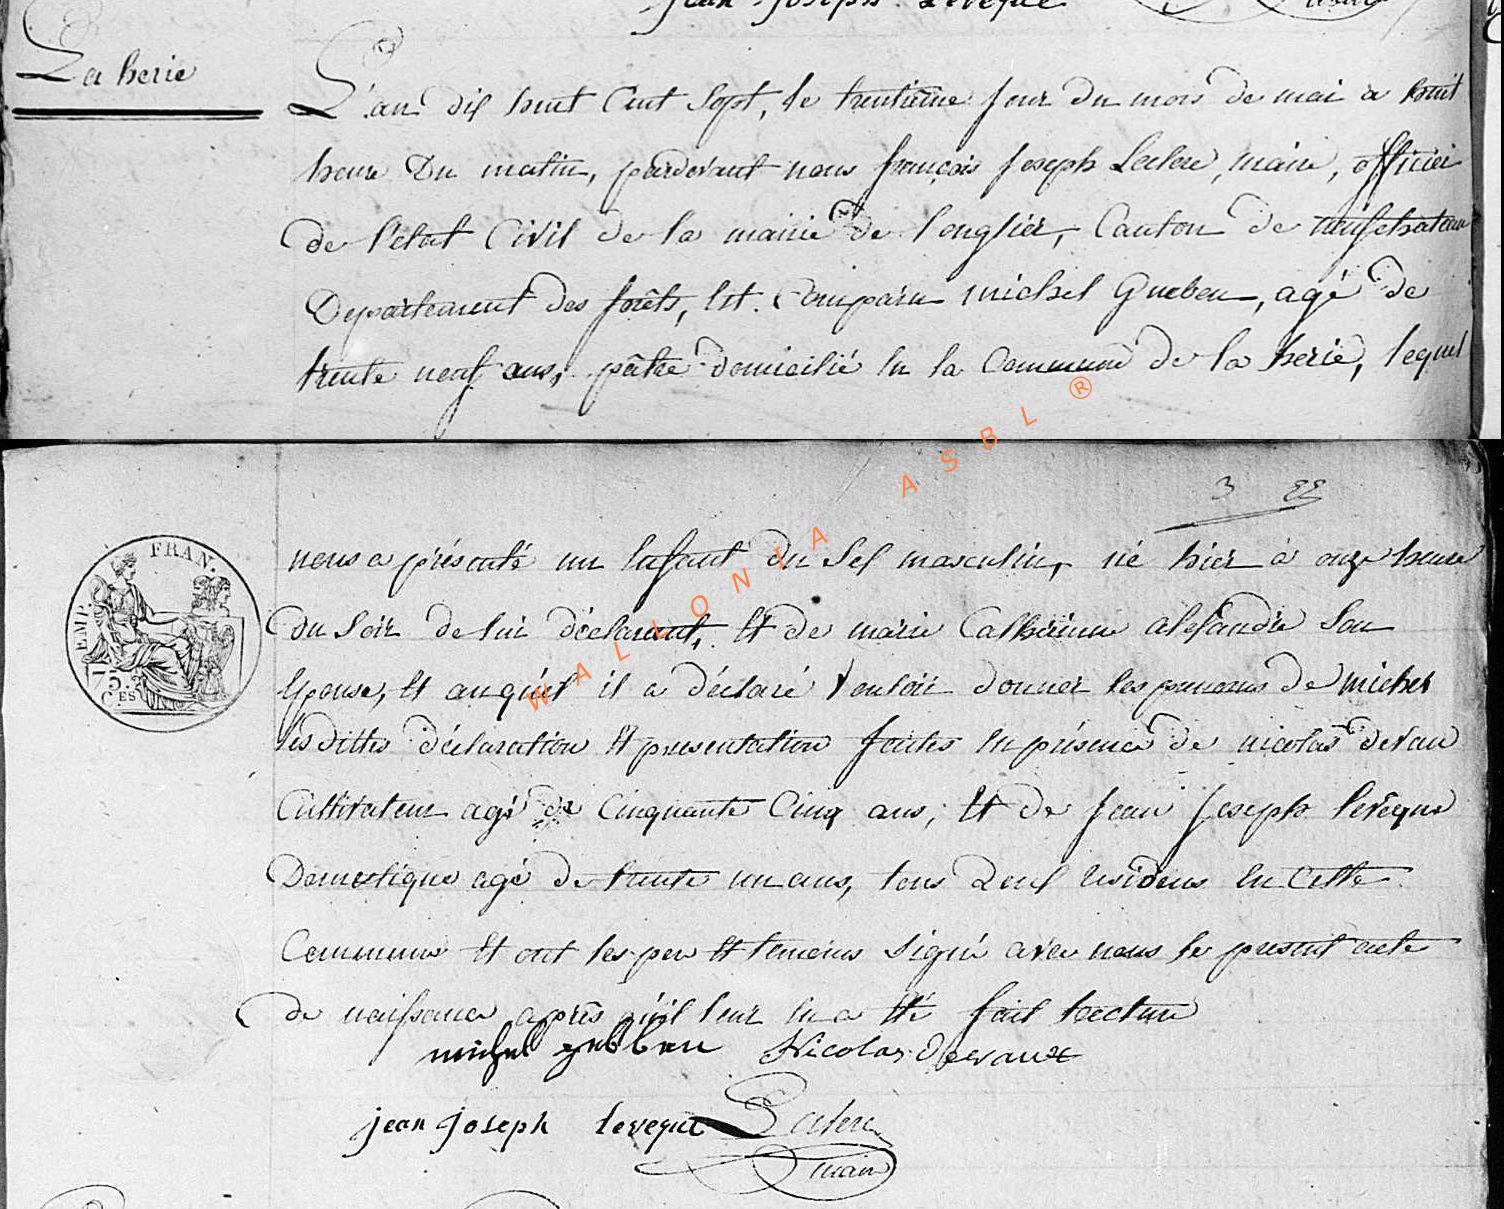 jean joseph leveque
La herie
L'an dix huit Cent Sept, le trentieme jour du mois de mai a huit
heure Du matin, pardevant nous françois Joseph Leclerc, maire, officier
de l'état Civil de la mairie de longlier, Canton de neufchateau
Departement des forêts, Est Comparu michel Gueben, agé de
trente neuf ans, pâtre domicilié En la Commune de la herie, lequel
3
nous a présenté un Enfant du Sex masculin, né hier à onze heure
du Soir de lui déclarant, Et de marie Catherinne alexandre Son
Epouse, Et auquel il a déclaré Vouloir donner les prenoms de michel
lesdittes déclaration Et presentation faites En présence de nicolas devau
Cultivateur agé de Cinquante Cinq ans, Et de jean joseph levêque
Domestique agé de trente un ans, tous Deux residens En Cette
Commune Et ont les per Et temoins Signé avec nous le present acte
de naissance après qu'il leur En a Eté fait Lecture
michel guebben Nicolas Devaux
jean joseph leveque Leclerc
maire
FRAN.
EMP.
75
CES
WALLONIA ASBL ®